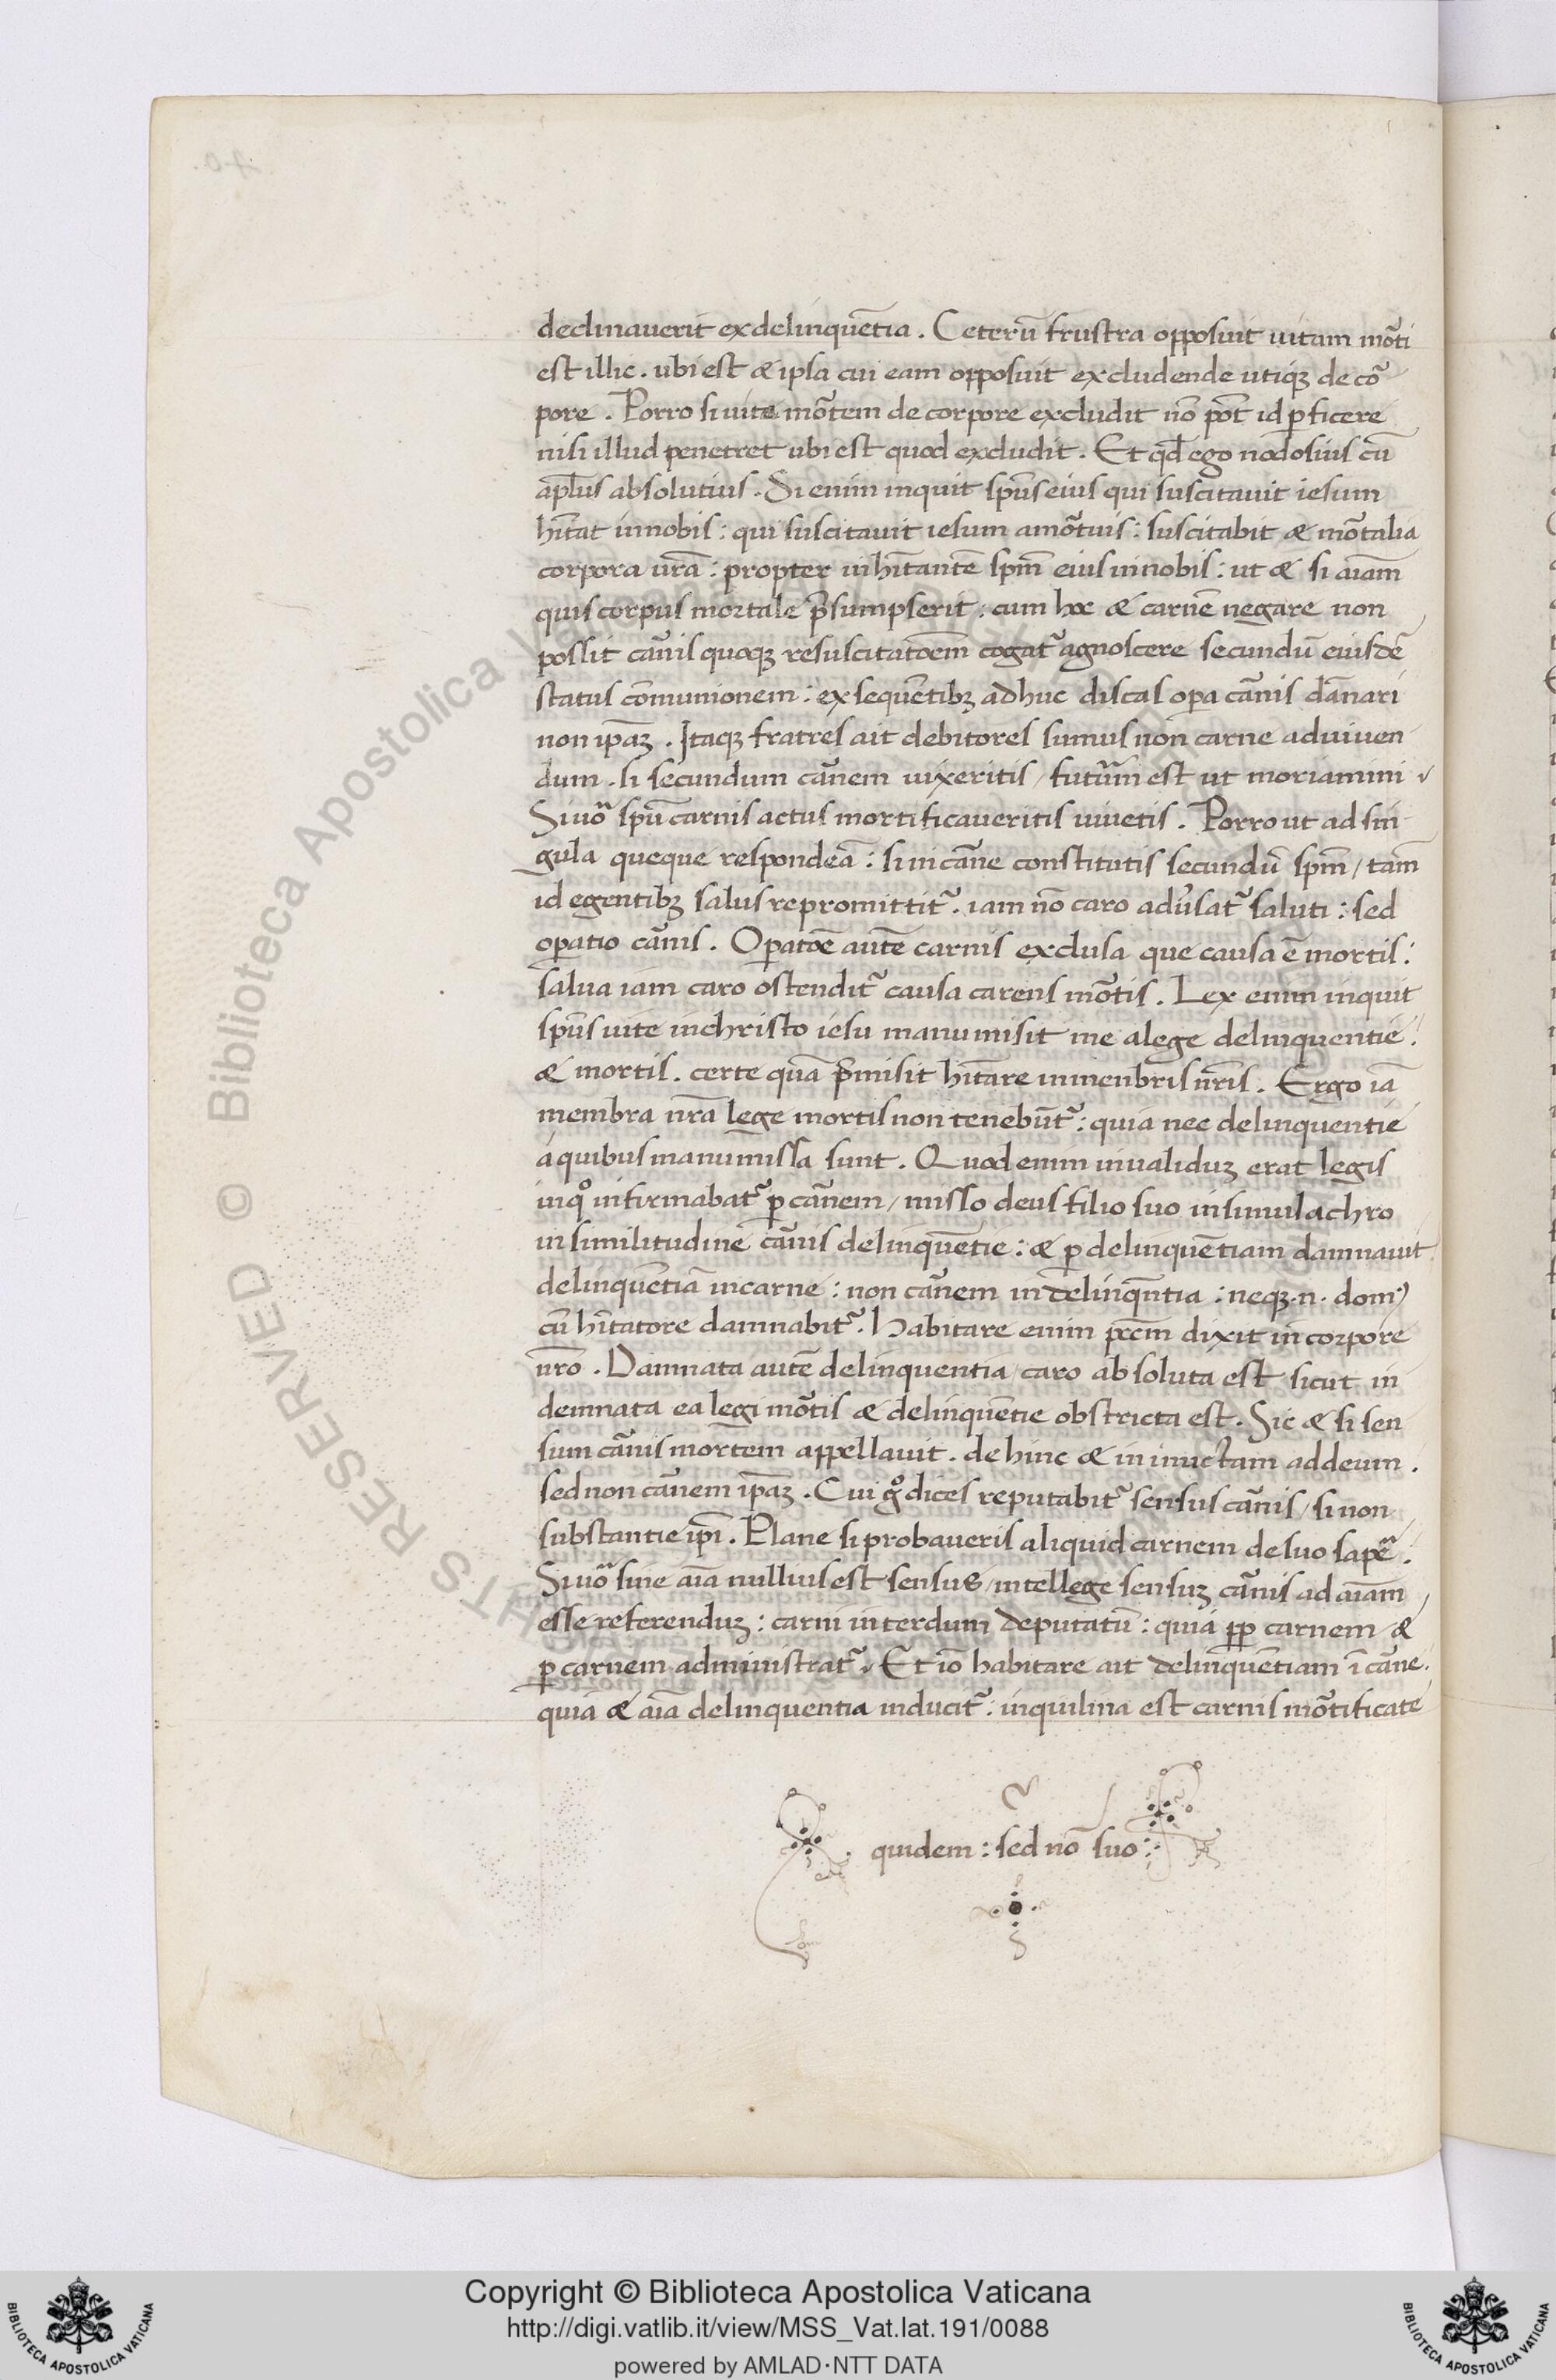 declinauerit ex delinquẽtia. Ceterũ frustra opposuit uitam mõti
est illic. ubi est & ipsa cui eam opposuit excludende utiqꝫ de cõ
pore. Porro si uita mõtem de corpore excludit nõ põt id ꝑficere
nisi illud penetret ubi est quod excludit. Et qđ ego nodosius cũ
apĺus absolutius. Si enim inquit spũs eius qui suscitauit iesum
hĩtat in nobis: qui suscitauit iesum a mõtuis: suscitabit & mõtalia
corpora ur̃a: propter inhĩtantẽ spm̃ eius in nobis: ut & si aiam̃
quis corpus mortale p̃sumpserit: cum hoc & carnẽ negare non
possit cãnis quoqꝫ resuscitatõem cogat᷑ agnoscere secundũ eiusdẽ
status cõmunionem: ex sequẽtibꝫ adhuc discas oꝑa cãnis dãnari
non ip̃aꝫ. Itaqꝫ fratres ait debitores sumus non carne ad uiuen
dum. si secundum cãnem uixeritis / futũm est ut moriamini
Si uõ spũ carnis actus mortificaueritis uiuetis. Porro ut ad sin
gula queque respondeã: si in cãne constitutis secundũ spm̃ / tam̃
id egentibꝫ salus repromittit᷑. iam nõ caro adũsat᷑ saluti: sed
oꝑatio cãnis. Oꝑatõe autẽ carnis exclusa que causa ẽ mortis:
salua iam caro ostendit᷑ causa carens mõtis. Lex enim inquit
spũs uite in christo iesu manumisit me a lege delinquentie:
& mortis. certe quã p̃misit hĩtare in menbris nr̃is. Ergo iã
membra nr̃a lege mortis non tenebũt᷑: quia nec delinquentie
a quibus manumissa sunt. Quod enim inualiduꝫ erat legis
in qͦ infirmabat᷑ ꝑ cãnem / misso deus filio suo in simulachro
in similitudinẽ cãnis delinquẽtie: & ꝑ delinquẽtiam damnauit
delinquẽtiã in carne: non cãnem in delinq̃ntia: neqꝫ .n. domꝰ
cũ hĩtatore damnabit᷑. Habitare enim pcc̃m dixit in corpore
nr̃o. Damnata autẽ delinquentia / caro absoluta est sicut in
demnata ea legi mõtis & delinquẽtie obstricta est. Sic & si sen
sum cãnis mortem appellauit. dehinc & inimictam ad deum.
sed non cãnem ip̃aꝫ. Cui gͦ dices reputabit᷑ sensus cãnis / si non
substantie ip̃i. Plane si probaueris aliquid carnem de suo sapẽ.
Si uõ sine aĩa nullius est sensus / intellege sensuꝫ cãnis ad aĩam
esse referenduꝫ: carni interdum deputatũ: quia ꝓp carnem &
ꝑ carnem administrat᷑. Et iõ habitare ait delinquẽtiam ĩ cãne.
quia & aĩa delinquentia inducit᷑: inquilina est carnis mõtificate
quidem: sed nõ suo:
Copyright © Biblioteca Apostolica Vaticana
http://digi.vatlib.it/view/MSS_Vat.lat.191/0088
powered by AMLAD·NTT DATA
BIBLIOTECA APOSTOLICA VATICANA
BIBLIOTECA APOSTOLICA VATICANA